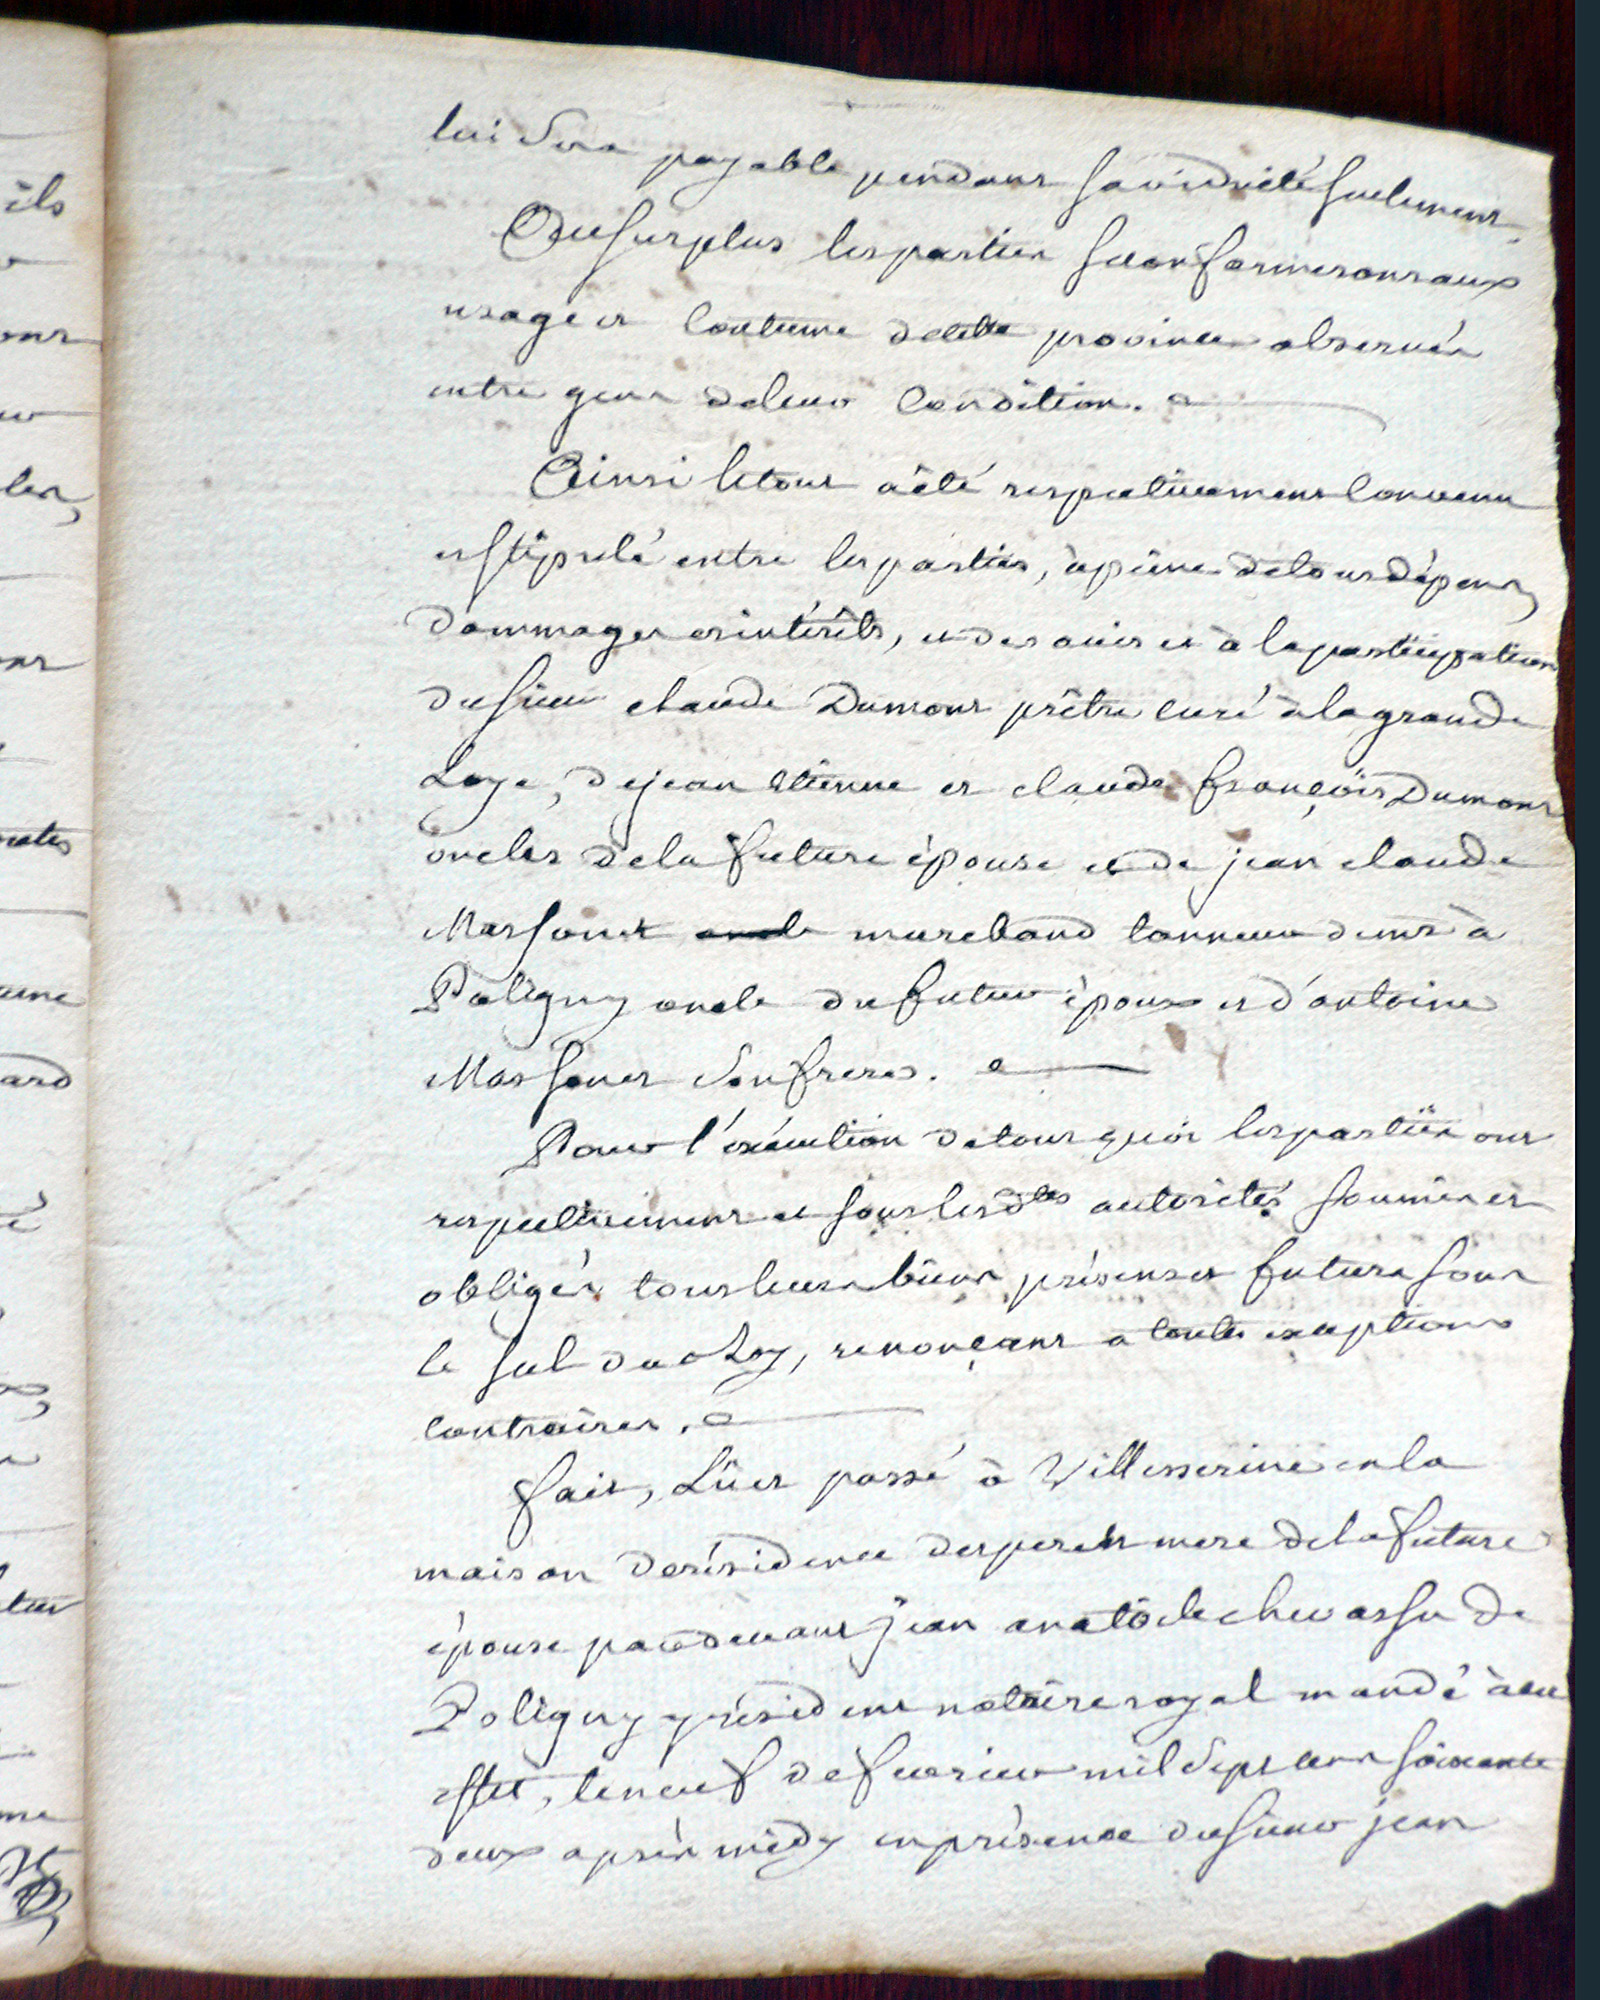 lui sera payable pendant sa viduité seulement.
Au surplus les parties se conformeront aux
usage et coutume de cette province observés
entre gens de leur condition.
Ainsi le tout a été respectivement convenu
et stipulé entre les parties, à peine de tous dépens,
dommages et intérêts, et des avis et à la participation
du sieur claude Dumont prêtre curé à la grande
Loye, de jean étienne et claude françois Dumont
oncles de la future épouse et de jean claude
Massonet oncle marchand tanneur demt à
Poligny oncle du futur époux et d'antoine
Massonet son frere.
Pour l'exécution de tout quoi les parties ont
respectivement et sous lesdtes autorités soumis et
obligés tous leurs biens présens et futurs sous
le scel du Roy, renonçant a toutes exceptions
contraires.
fait, Lû et passé à Villerserine en la
maison de résidence des pere et mere de la future
épouse pardevant jean anatoile chevassu de
Poligny y résident notaire royal mandé à cet
effet, le neuf de fevrier mil sept cent soixante
deux après midy en présence du sieur jean
ils
ont
ard